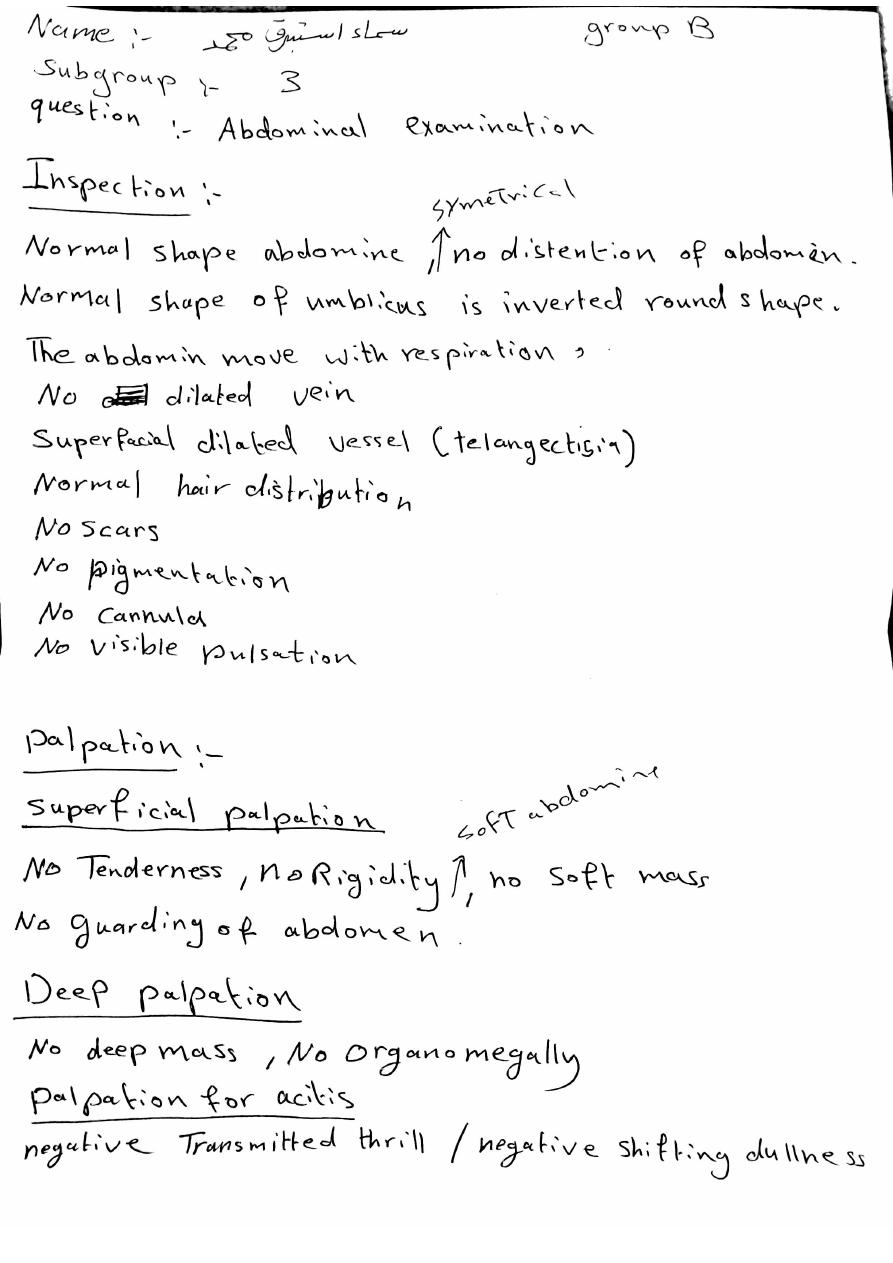 Name :- group B
Subgroup :- 3
question :- Abdominal examination
Inspection :-
symetrical
Normal shape abdomine, ↑ no distention of abdomen.
Normal shape of umblicus is inverted round shape.
The abdomin move with respiration,
No dilated vein
Superfacial dilated vessel (telangectisia)
Normal hair distribution
No scars
No pigmentation
No Cannula
No visible pulsation
Palpation :-
soft abdomine
Superficial palpation
No Tenderness, no Rigidity ↑, no soft mass
No guarding of abdomen.
Deep palpation
No deep mass, No Organomegally
Palpation for acitis
negative Transmitted thrill / negative shifting dullness